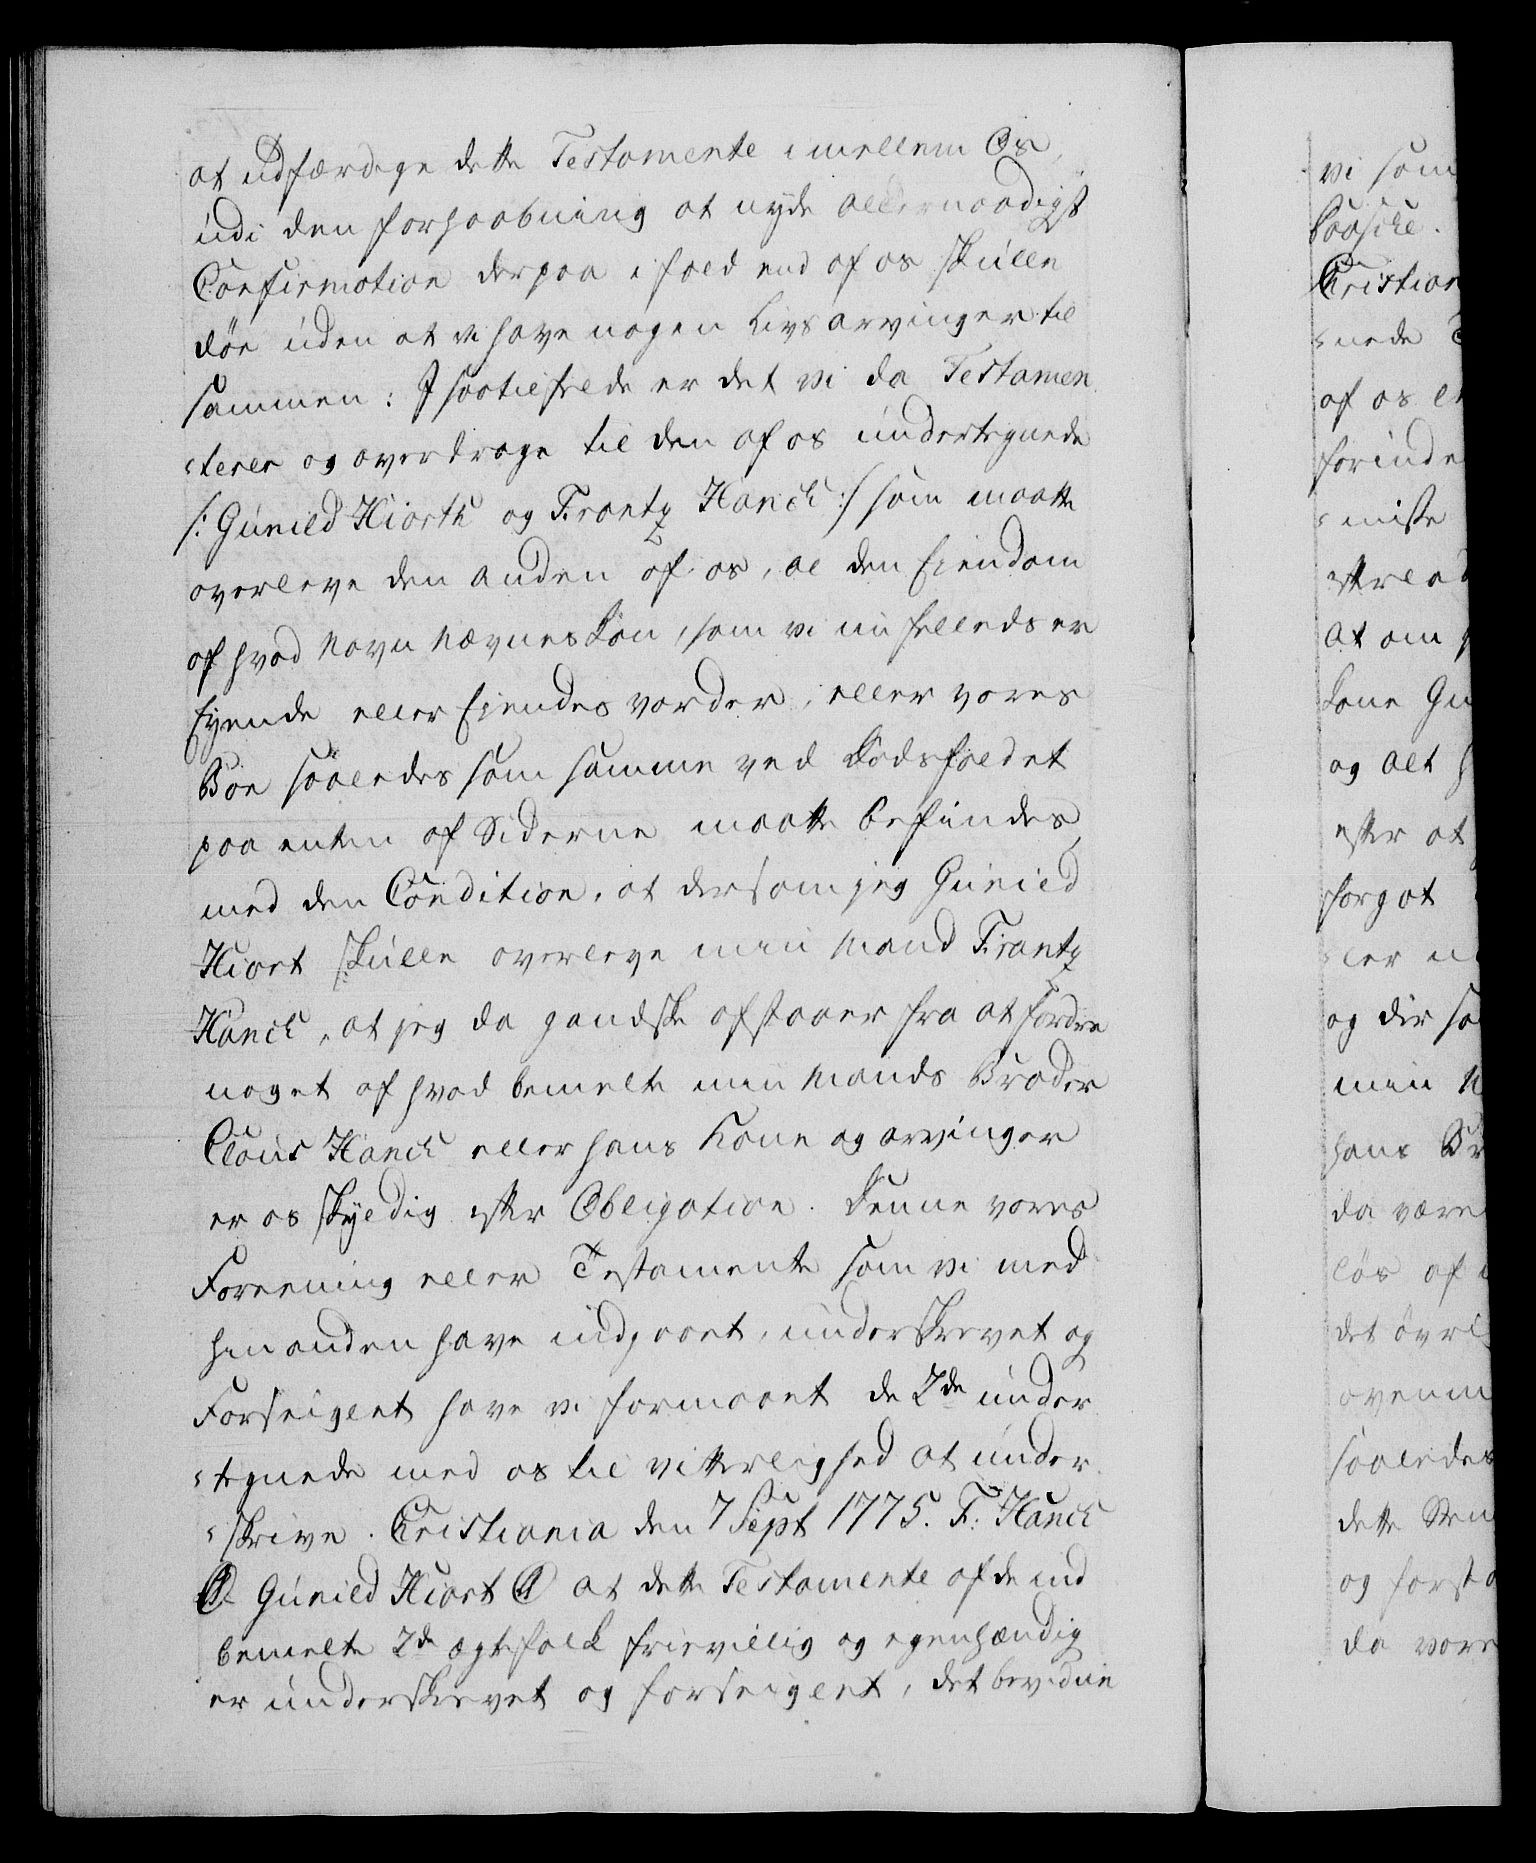 at udfærdige dette Testamente imellem Os,
udi den forhaabning at nyde allernaadigst
Confirmation derpaa i fald end af os skulle
döe uden at vi have nogen Livs arvinger til
sammen: I saatilfelde er det vi da Testamen
-terer og overdrage til den af os undertegnede
/: Gunild Hiorth og Frantz Hanch :/ som maatte
overleve den anden af os, al den Eiendom
af hvad Navn Nævnes kan, som vi nu felleds er
Eyende eller Eiendes vorder, eller vores
Boe saaledes som samme ved Dödsfaldet
paa enten af Siderne maatte befindes,
med den Condition, at dersom jeg Gunild
Hiort skulle overleve min Mand Frantz
Hanch, at jeg da gandske afstaaer fra at fordre
noget af hvad bemelte min Mands Broder
Claus Hanch eller hans Kone og arvinger
er os skyldig efter Obligation. Denne vores
Foreening eller Testamente som vi med
hinanden have indgaaet, underskrevet og
Forseiglet have vi formaaet de 2de under
-tegnede med os til vitterlighed at under
-skrive. Cristiania den 7 Sept 1775. F: Hanch
Gunild Hiort at dette Testamente af de ind
bemelte 2de ægtefolk frievillig og egenhændig
er underskrevet og forseiglet, det bevidne
vi som
Cristian
-nede
af os
-miste
at om
Kone Gu
og alt
efter at
og der
min
hans Br
da være
lös af
det övri
saaledes
dette
og forst
da vore